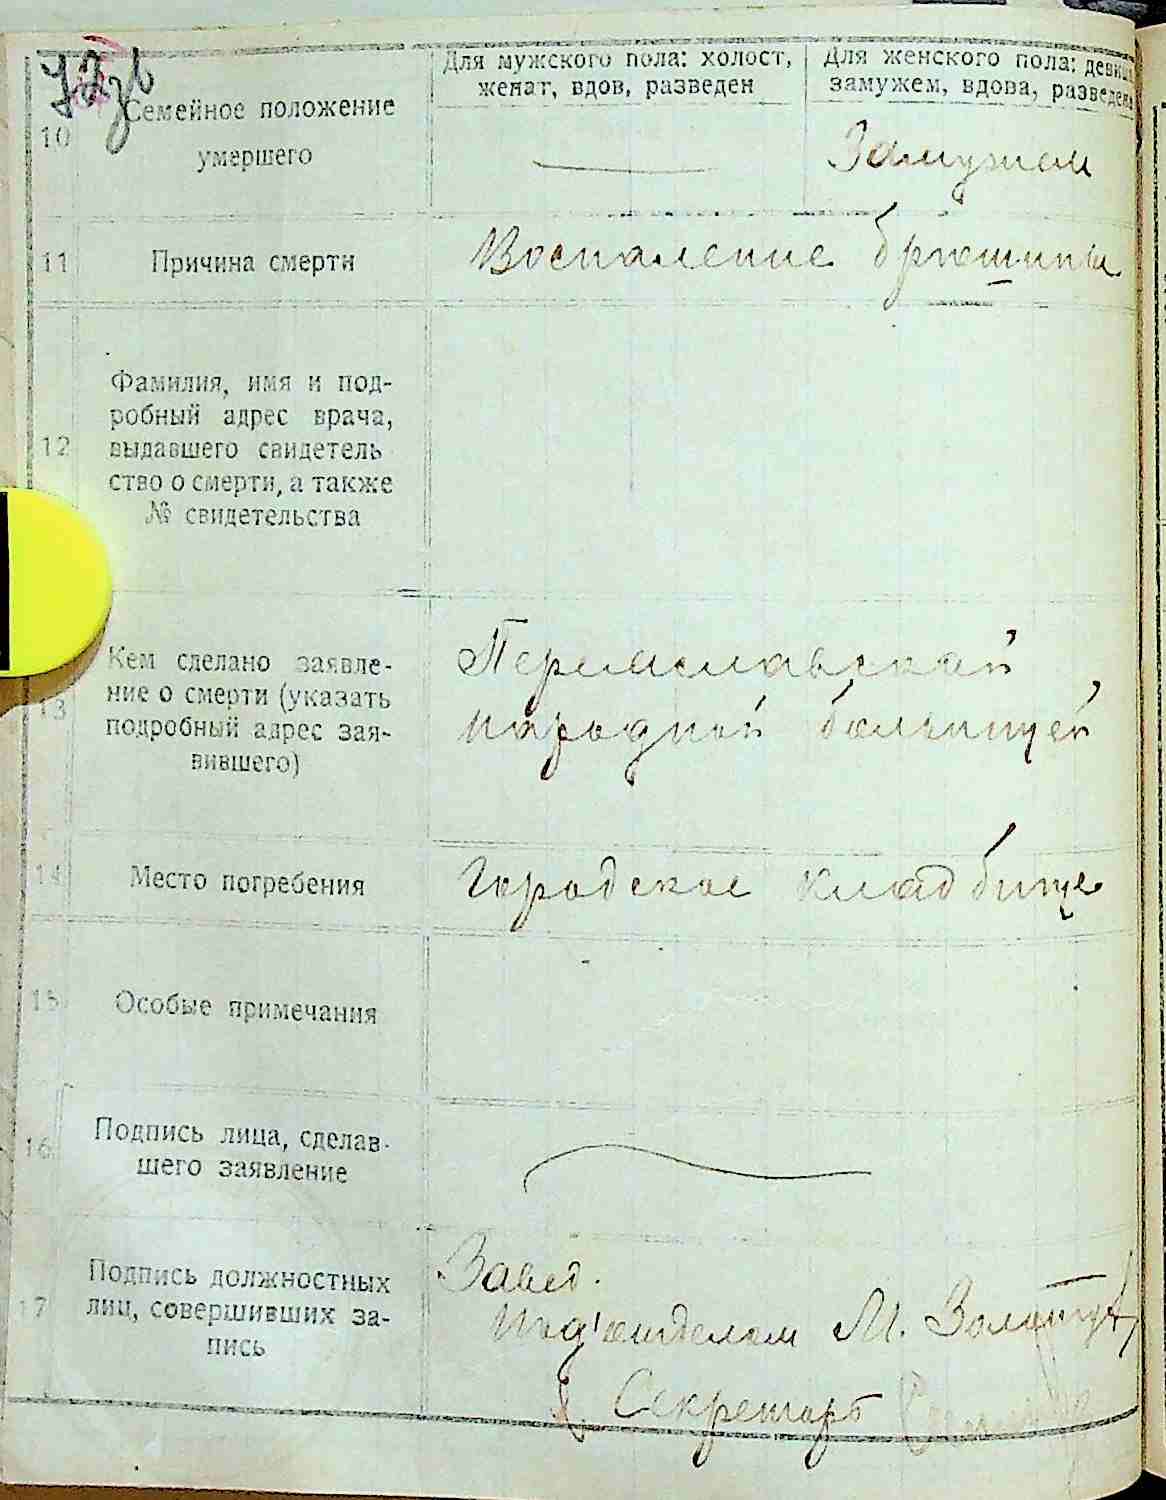 72зв
Для мужского пола: холост,
женат, вдов, разведен
Для женского пола: девица
замужем, вдова, разведена
10
Семейное положение
умершего
Замужем
11
Причина смерти
Воспаление брюшины
12
Фамилия, имя и под-
робный адрес врача,
выдавшего свидетель
ство о смерти, а также
№ свидетельства
13
Кем сделано заявле-
ние о смерти (указать
подробный адрес зая-
вившего)
Переяславской
народной больницей
14
Место погребения
Городское кладбище
15
Особые примечания
16
Подпись лица, сделав-
шего заявление
17
Подпись должностных
лиц, совершивших за-
пись
Завед.
под'отделом М.
Секретарь